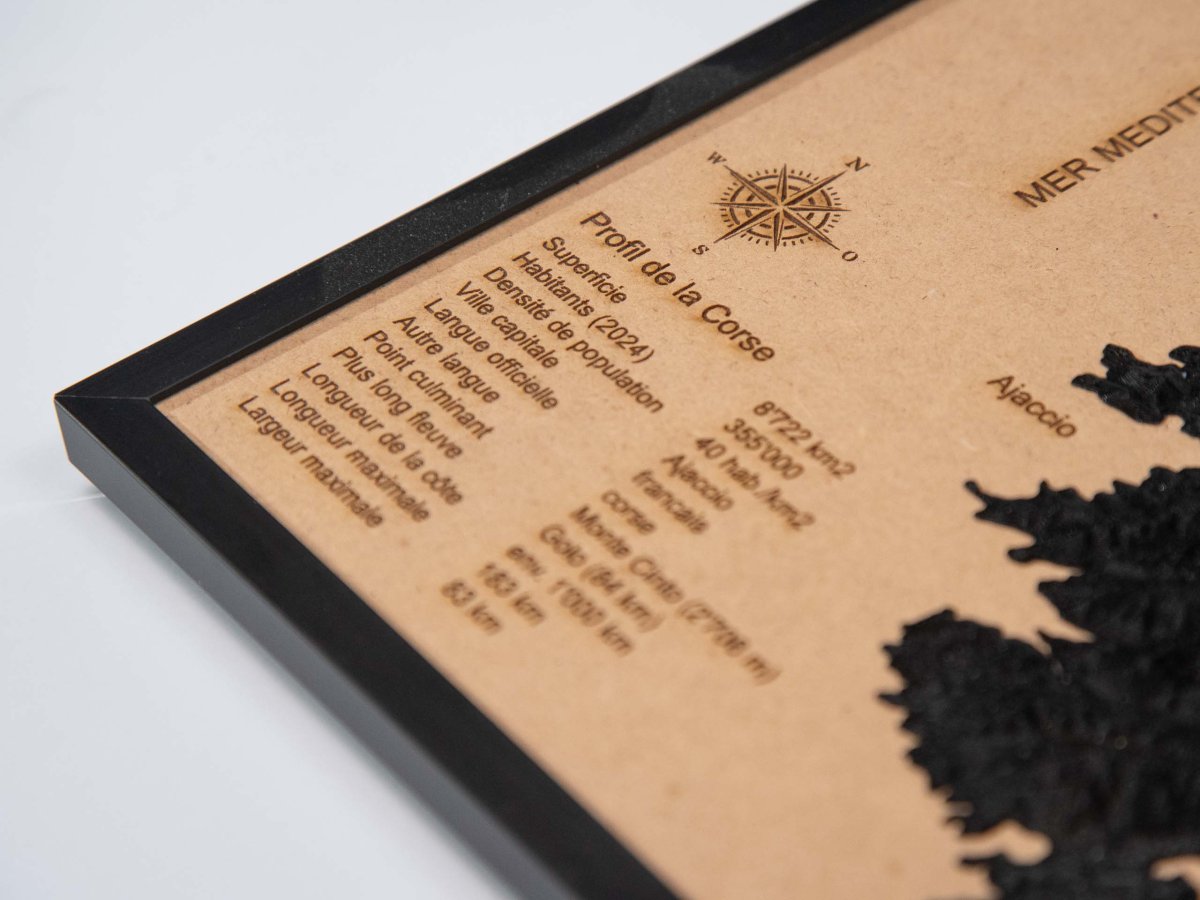 W N
S O
MER MEDITE
Profil de la Corse
Superficie 8'722 km2
Habitants (2024) 355'000
Densité de population 40 hab./km2
Ville capitale Ajaccio
Langue officielle francais
Autre langue corse
Point culminant Monte Cinto (2'706 m)
Plus long fleuve Golo (84 km)
Longueur de la côte env. 1'000 km
Longueur maximale 183 km
Largeur maximale 83 km
Ajaccio